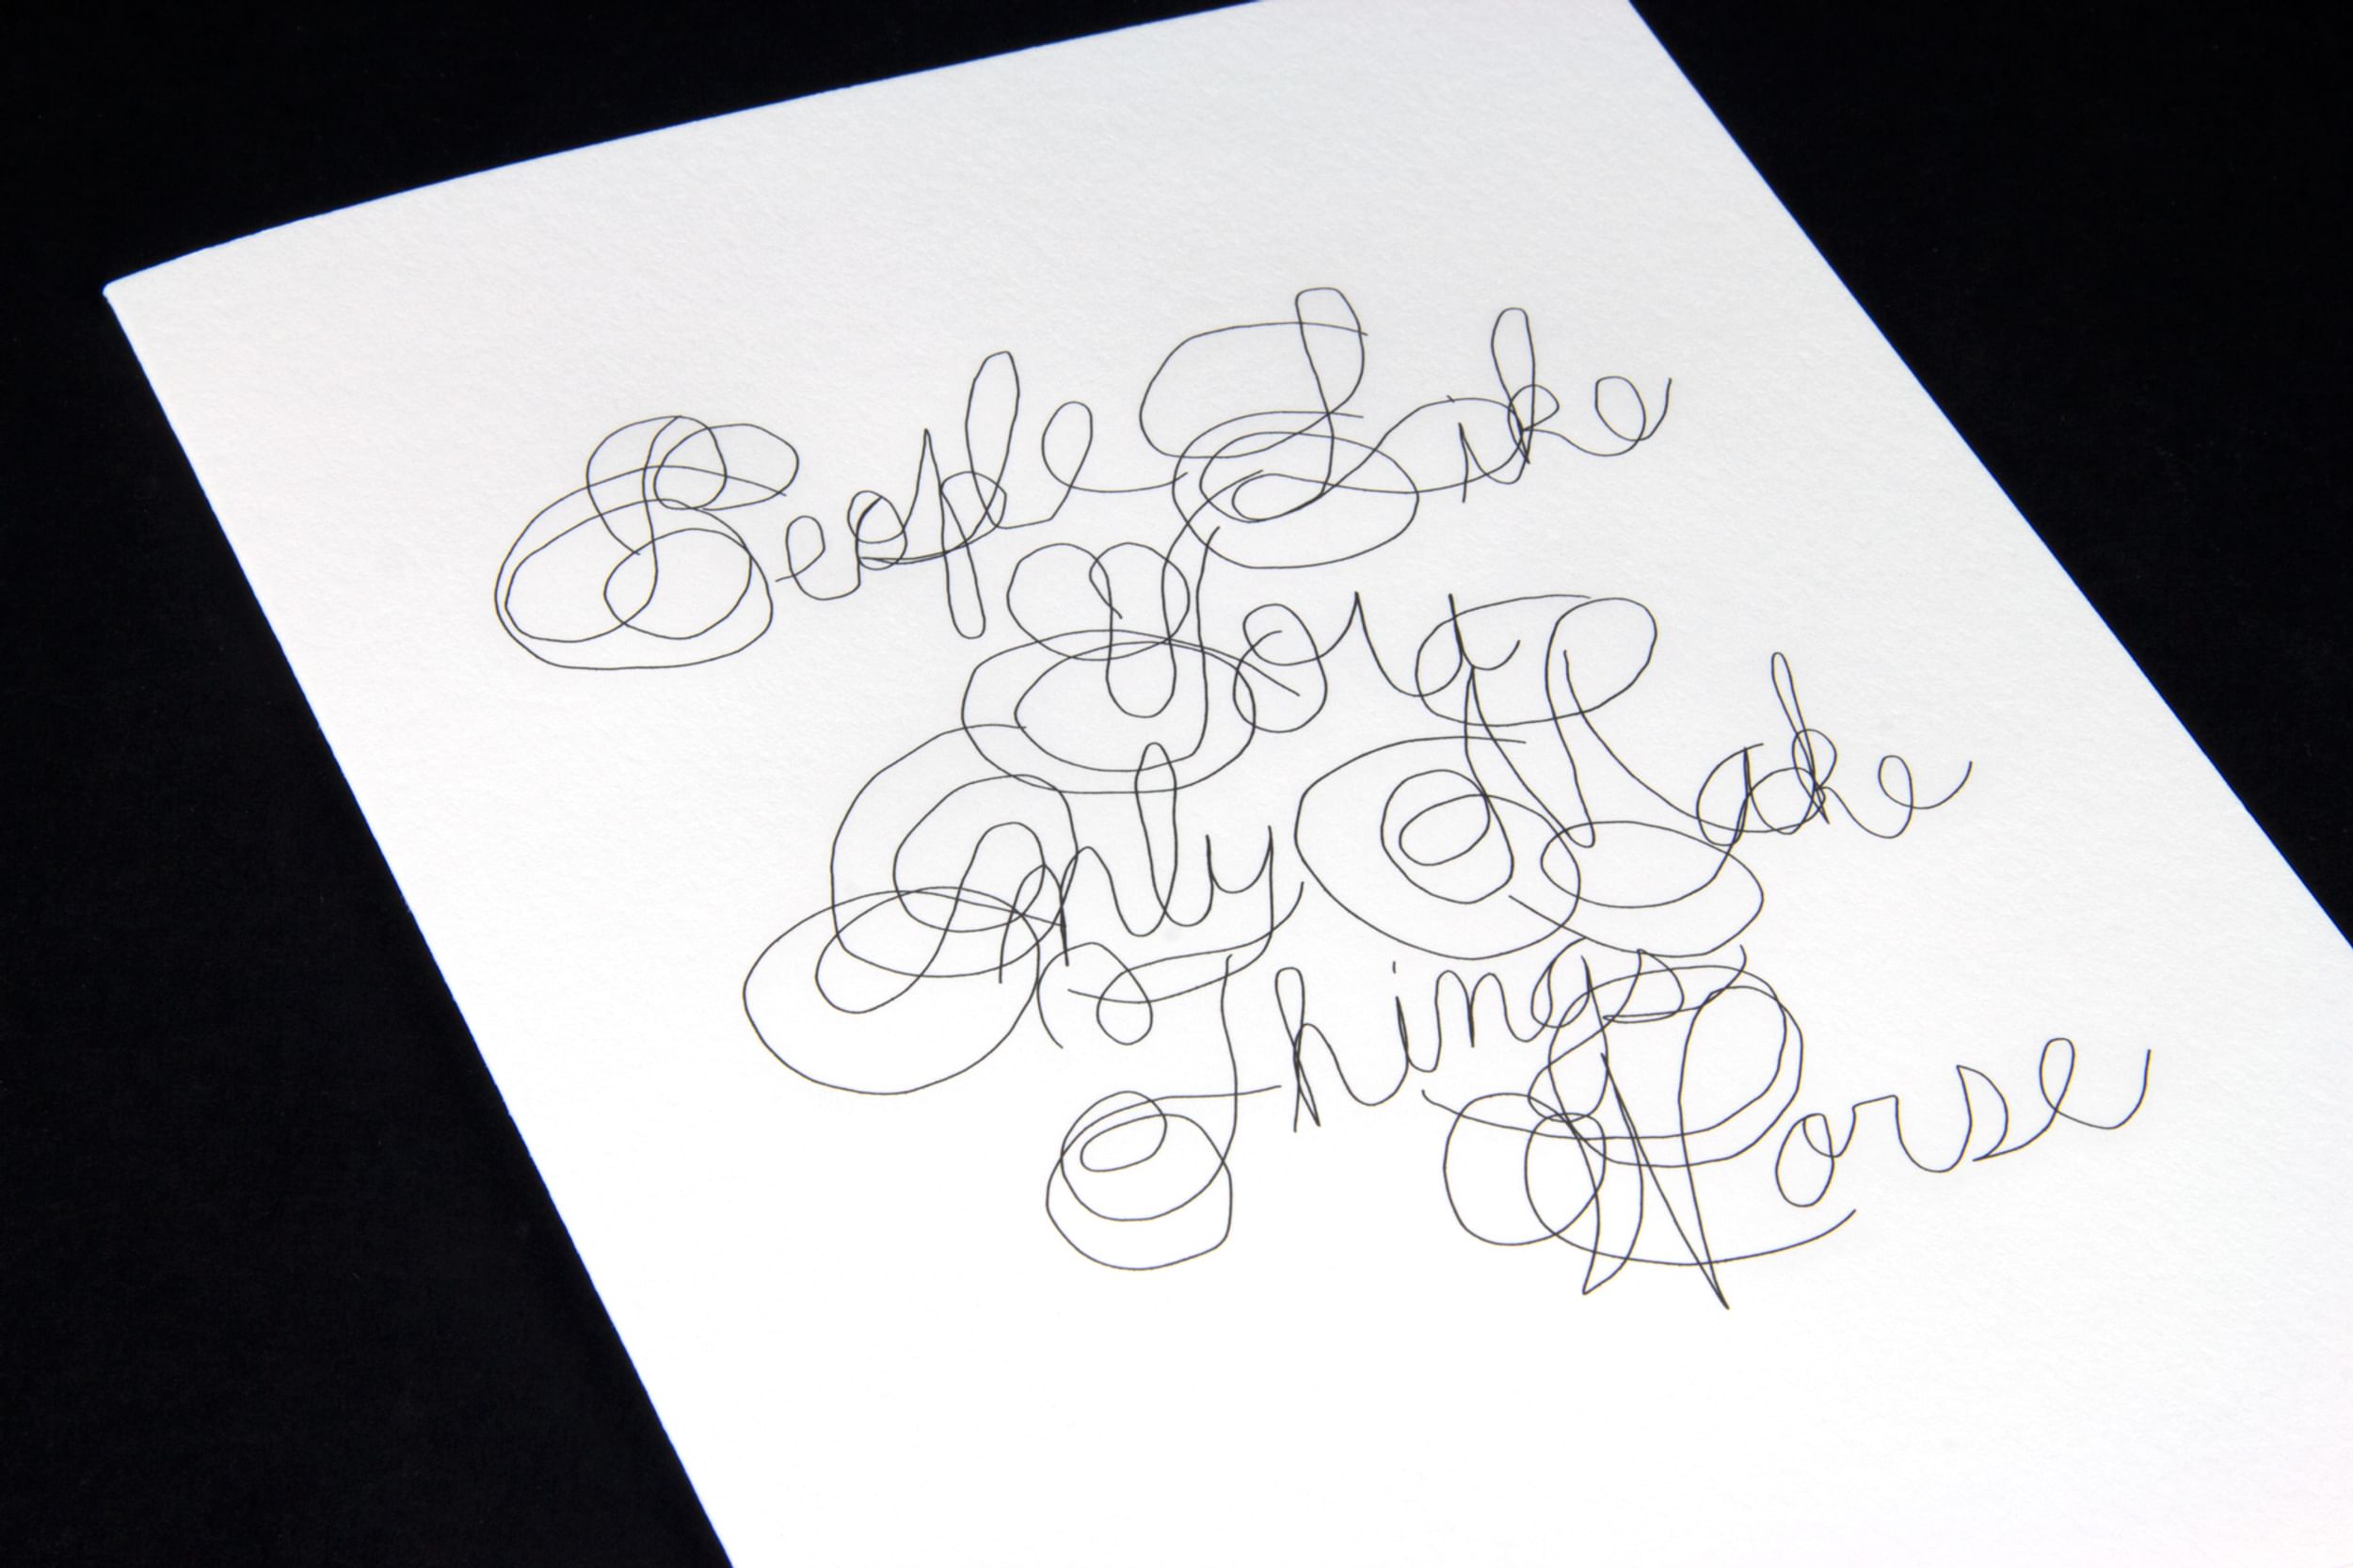 People Like
You
Only Make
Things
Worse